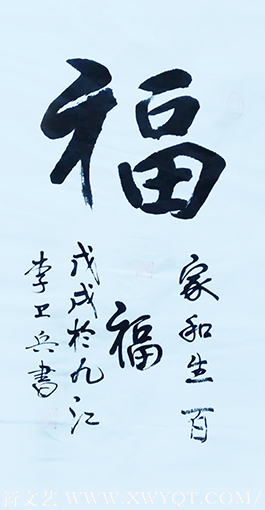 福
家和生百
福
戊戌於九江
李卫兵書
新文艺 WWW.XWYQT.COM/